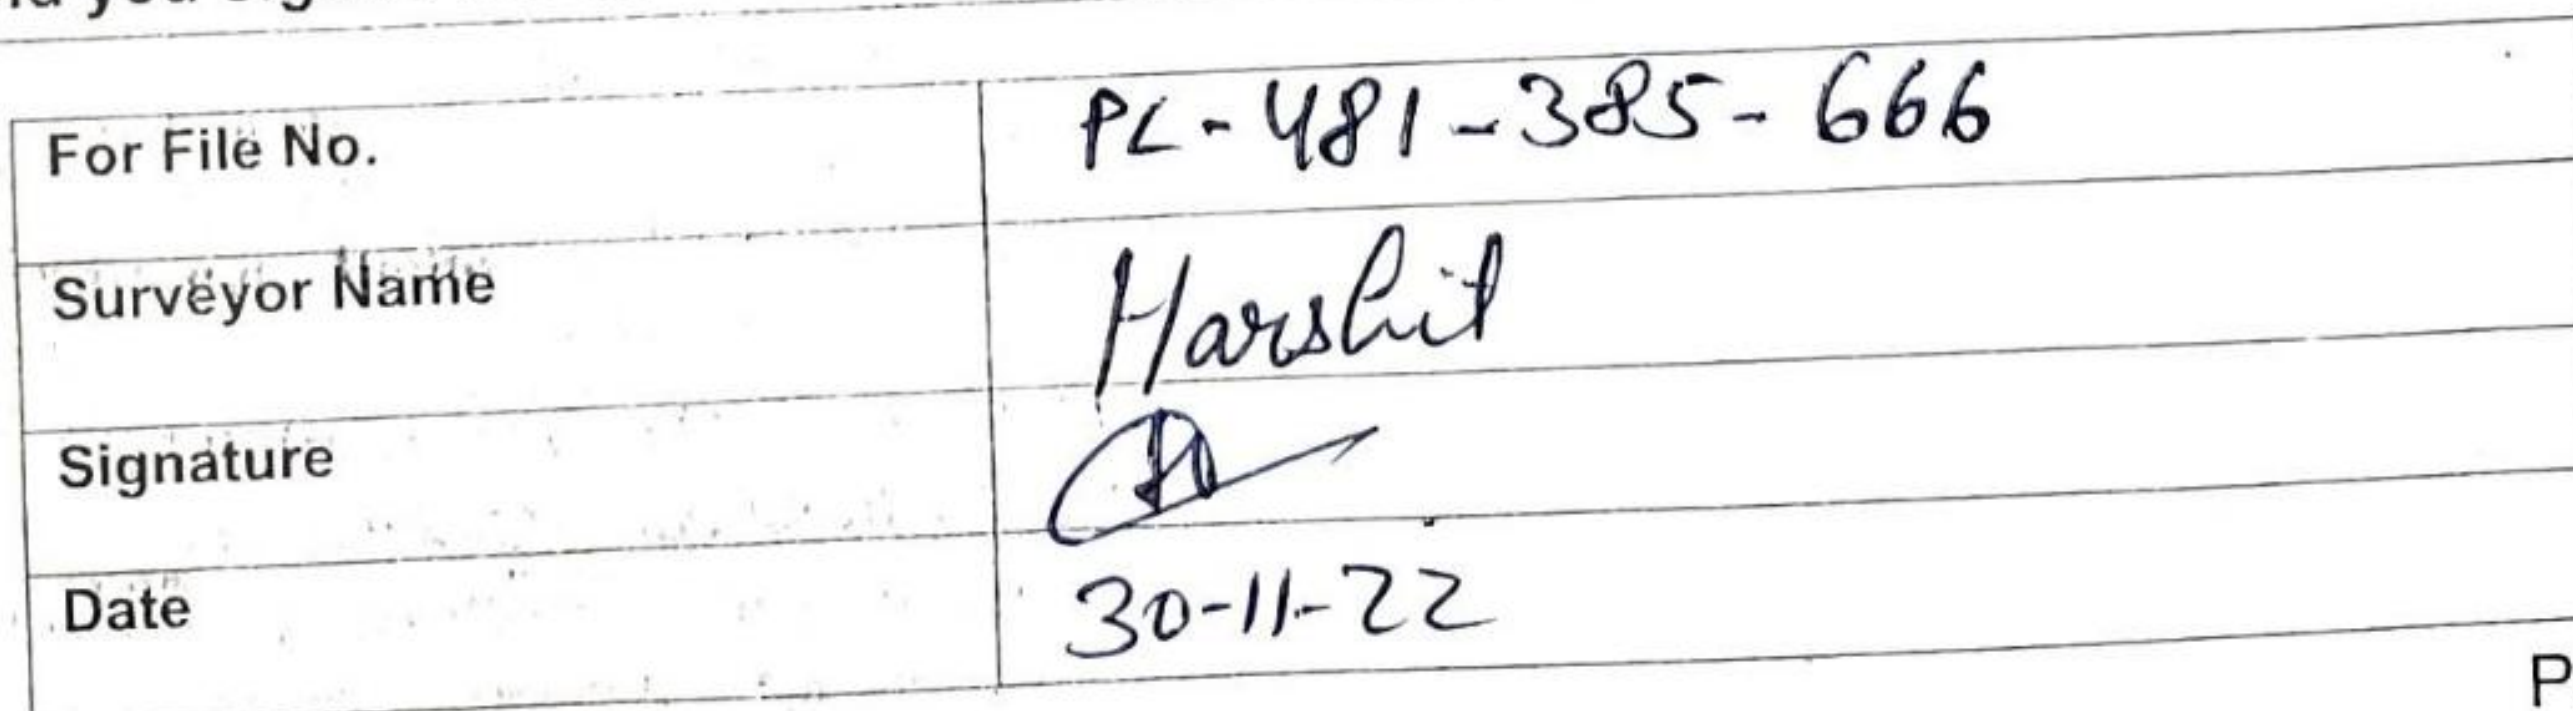 For File No. PL-481-385-666
Surveyor Name Harshit
Signature
Date 30-11-22
P